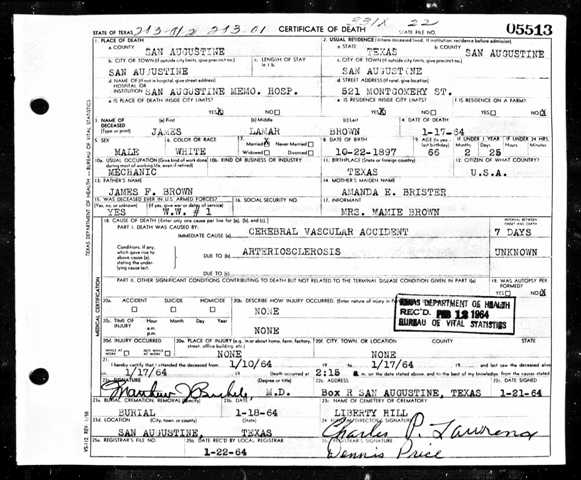 STATE OF TEXAS CERTIFICATE OF DEATH STATE FILE NO. 05513
1. PLACE OF DEATH 2. USUAL RESIDENCE (Where deceased lived. If institution: residence before admission)
a. COUNTY a. STATE b. COUNTY
SAN AUGUSTINE TEXAS SAN AUGUSTINE
b. CITY OR TOWN (If outside city limits, give precinct no.) c. LENGTH OF STAY in 1 b. c. CITY OR TOWN (If outside city limits, give precinct no.)
SAN AUGUSTINE SAN AUGUSTINE
d. NAME OF (If not in hospital, give street address) HOSPITAL OR INSTITUTION d. STREET ADDRESS
SAN AUGUSTINE MEMO. HOSP. 521 MONTGOMERY ST.
e. IS PLACE OF DEATH INSIDE CITY LIMITS? YES X NO e. IS RESIDENCE INSIDE CITY LIMITS? YES X NO f. IS RESIDENCE ON A FARM? YES NO X
3. NAME OF DECEASED (Type or print) (a) First (b) Middle (c) Last 4. DATE OF DEATH
JAMES LAMAR BROWN 1-17-64
5. SEX 6. COLOR OR RACE 7. Married X Never Married Widowed Divorced 8. DATE OF BIRTH 9. AGE IF UNDER 1 YEAR IF UNDER 24 HRS.
MALE WHITE 10-22-1897 66 Months 2 Days 25 Hours Min.
10a. USUAL OCCUPATION (Give kind of work done 10b. KIND OF BUSINESS OR INDUSTRY 11. BIRTHPLACE (State or foreign country) 12. CITIZEN OF WHAT COUNTRY?
MECHANIC TEXAS U.S.A.
13. FATHER'S NAME 14. MOTHER'S MAIDEN NAME
JAMES F. BROWN AMANDA E. BRISTER
15. WAS DECEASED EVER IN U.S. ARMED FORCES? (Yes, no, or unknown) (If yes, give war or dates of service) 16. SOCIAL SECURITY NO. 17. INFORMANT
YES W.W. # 1 MRS. MAMIE BROWN
18. CAUSE OF DEATH (Enter only one cause per line for (a), (b), and (c).) INTERVAL BETWEEN ONSET AND DEATH
PART I. DEATH WAS CAUSED BY:
IMMEDIATE CAUSE (a) CEREBRAL VASCULAR ACCIDENT 7 DAYS
Conditions, if any, which gave rise to above cause (a) stating the underlying cause last.
DUE TO (b) ARTERIOSCLEROSIS UNKNOWN
DUE TO (c)
PART II. OTHER SIGNIFICANT CONDITIONS CONTRIBUTING TO DEATH BUT NOT RELATED TO THE TERMINAL DISEASE CONDITION GIVEN IN PART I(a) 19. WAS AUTOPSY PERFORMED? YES NO X
20a. ACCIDENT SUICIDE HOMICIDE 20b. DESCRIBE HOW INJURY OCCURRED. (Enter nature of injury in
NONE
TEXAS DEPARTMENT OF HEALTH
REC'D. FEB 12 1964
BUREAU OF VITAL STATISTICS
20c. TIME OF INJURY Hour Month Day Year a.m. p.m.
NONE
20d. INJURY OCCURRED WHILE AT WORK NOT WHILE AT WORK 20e. PLACE OF INJURY (e.g. in or about home, farm, factory, street, office building, etc.) 20f. CITY, TOWN, OR LOCATION COUNTY STATE
NONE NONE
21. I hereby certify that I attended the deceased from 1/10/64 to 1/17/64 and last saw the deceased alive
1/17/64 Death occurred at 2:15 m. on the date stated above, and to the best of my knowledge, from the causes stated.
22a. SIGNATURE (Degree or title) 22b. ADDRESS 22c. DATE SIGNED
M.D. BOX R SAN AUGUSTINE, TEXAS 1-21-64
23a. BURIAL, CREMATION, REMOVAL (Specify) 23b. DATE 23c. NAME OF CEMETERY OR CREMATORY
BURIAL 1-18-64 LIBERTY HILL
23d. LOCATION (City, town, or county) (State) 24. FUNERAL DIRECTOR'S SIGNATURE
SAN AUGUSTINE TEXAS Charles P. Lawrence
25a. REGISTRAR'S FILE NO. 25b. DATE REC'D BY LOCAL REGISTRAR 25c. REGISTRAR'S SIGNATURE
1-22-64 Dennis Price
TEXAS DEPARTMENT OF HEALTH — BUREAU OF VITAL STATISTICS
MEDICAL CERTIFICATION